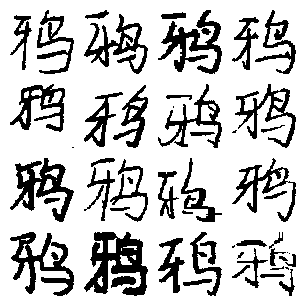 鸦鸦鸦鸦
鸦鸦鸦鸦
鸦鸦鸦鸦
鸦鸦鸦鸦